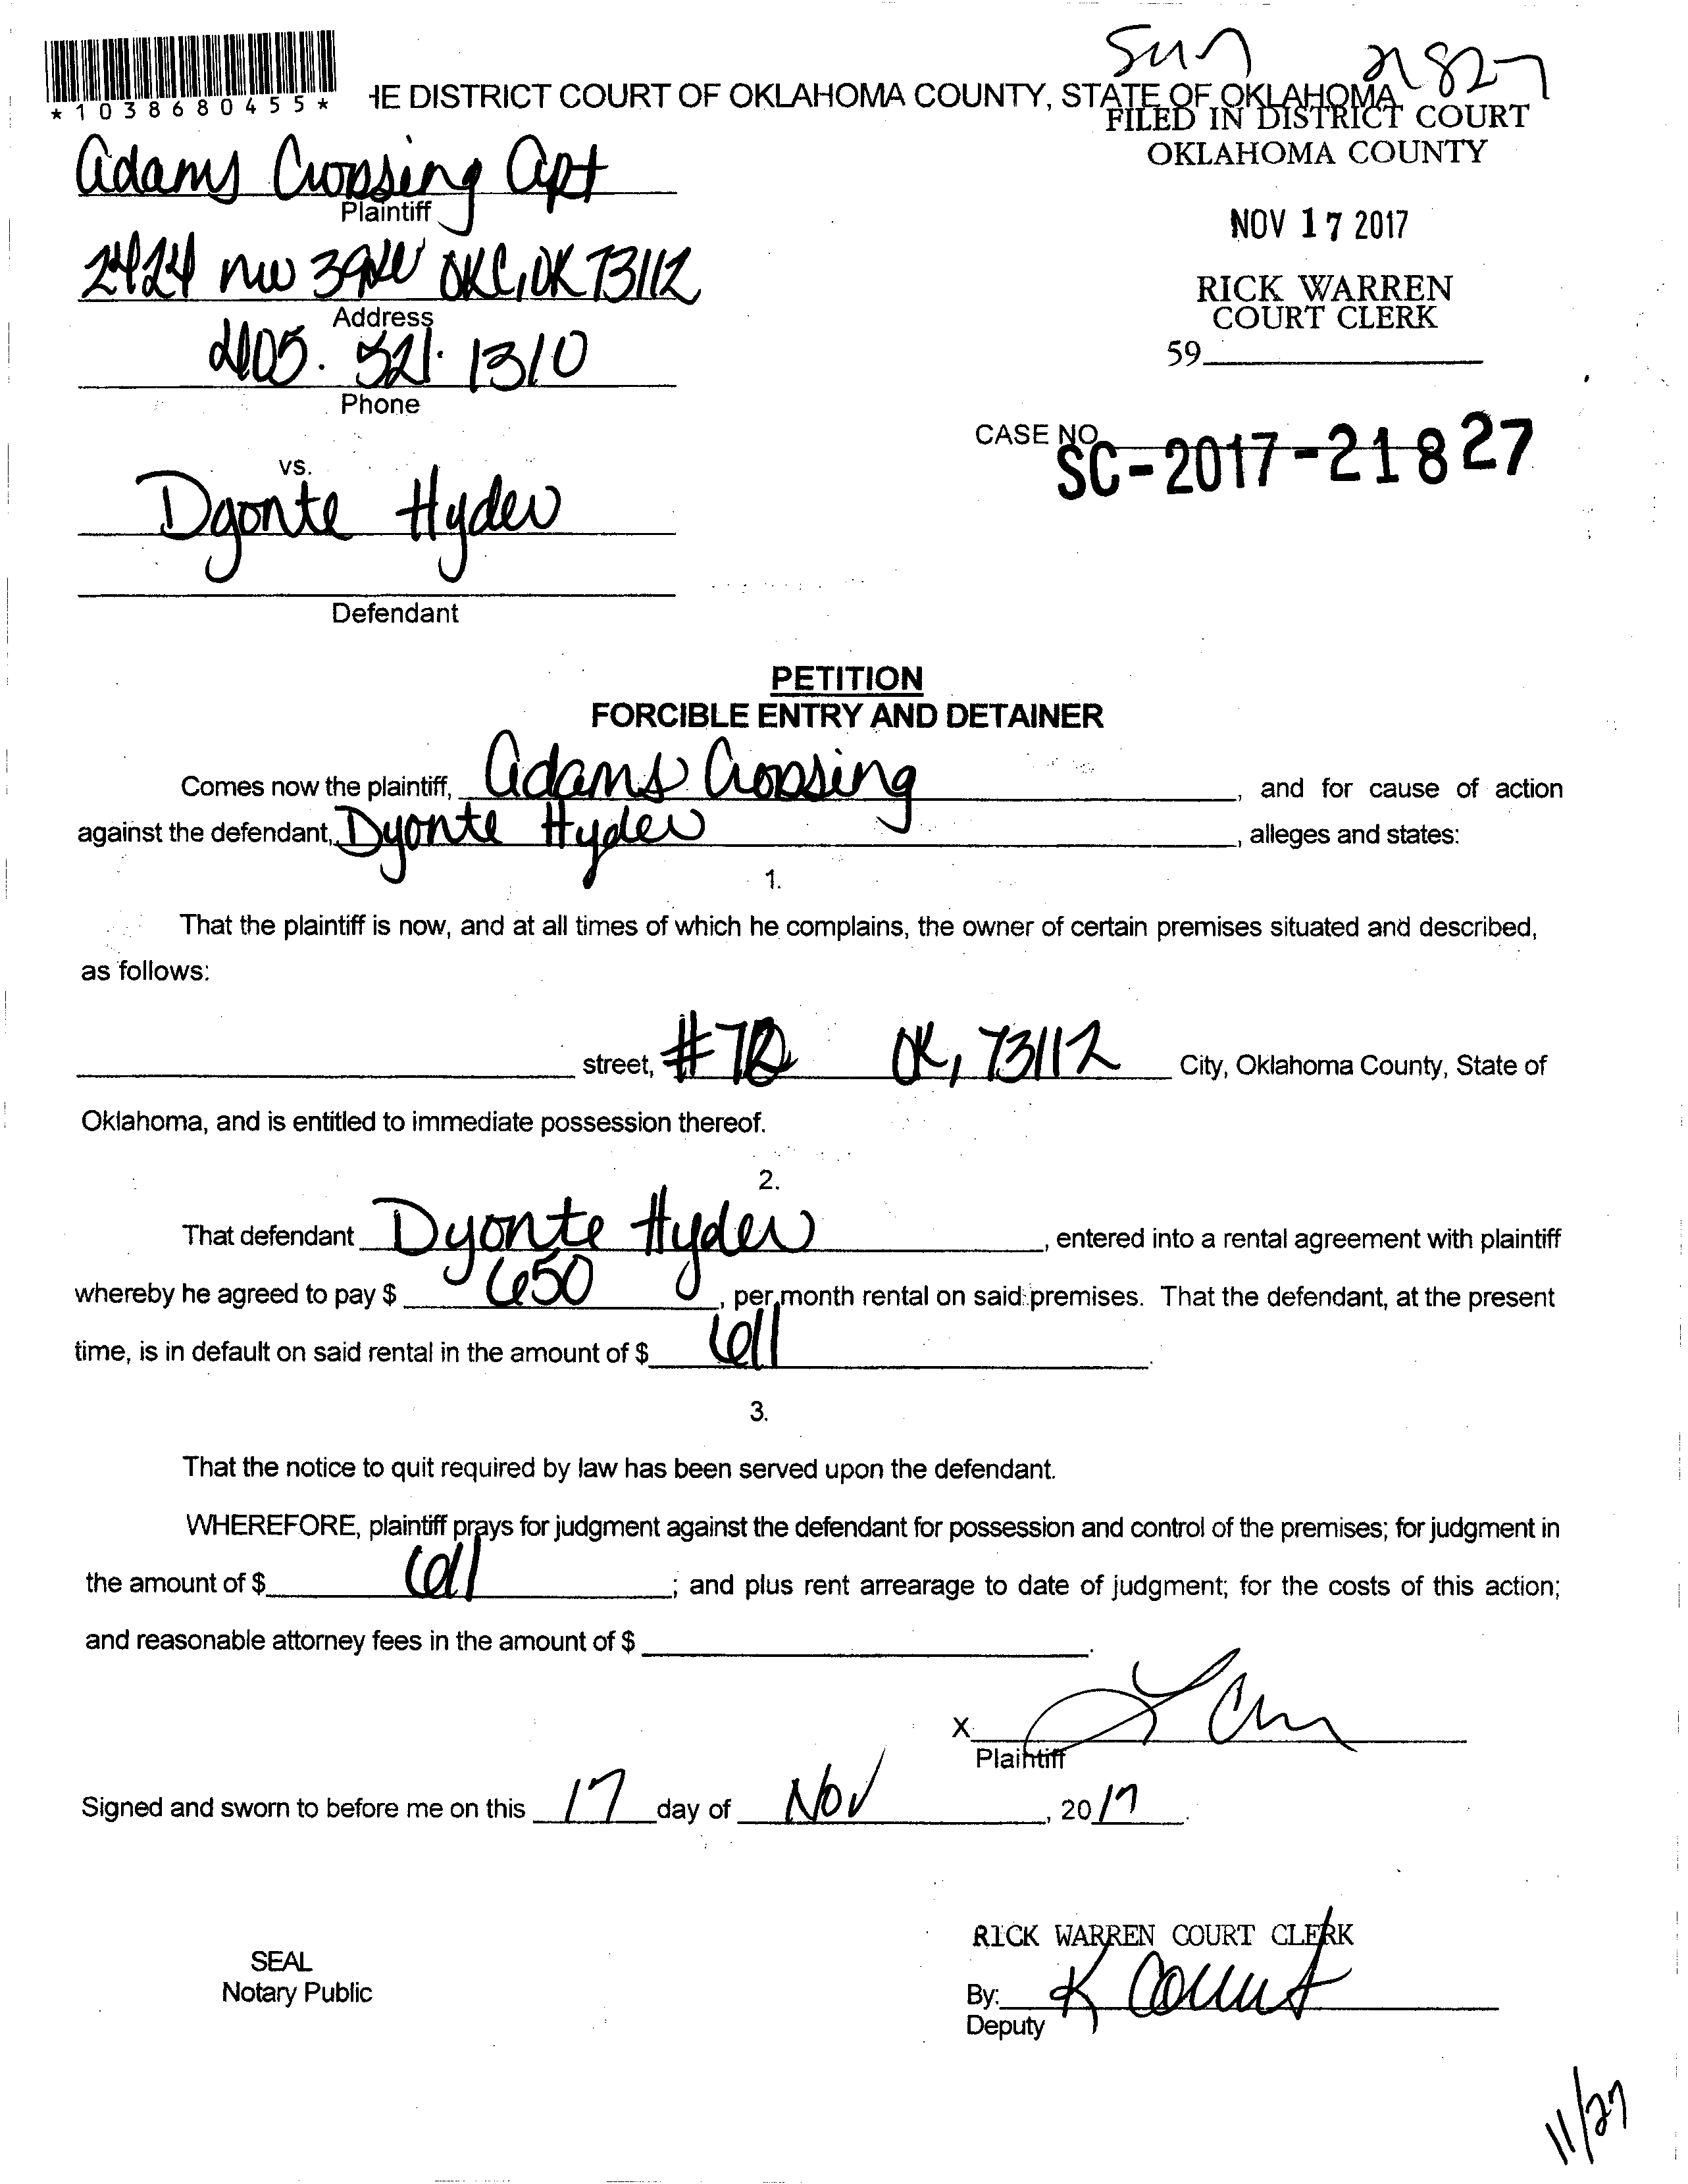 21827
*1038680455*
HE DISTRICT COURT OF OKLAHOMA COUNTY, STATE OF OKLAHOMA
FILED IN DISTRICT COURT
OKLAHOMA COUNTY
Adams Crossing Apt
Plaintiff
NOV 17 2017
2424 NW 39 OKC, OK 73112
Address
RICK WARREN
COURT CLERK
405. 521. 1310
59
Phone
CASE NO.
SC-2017-21827
vs.
Dyonte Hyder
Defendant
PETITION
FORCIBLE ENTRY AND DETAINER
Comes now the plaintiff, Adams Crossing, and for cause of action
against the defendant, Dyonte Hyder, alleges and states:
1.
That the plaintiff is now, and at all times of which he complains, the owner of certain premises situated and described,
as follows:
street, # OK, 73112 City, Oklahoma County, State of
Oklahoma, and is entitled to immediate possession thereof.
2.
That defendant Dyonte Hyder, entered into a rental agreement with plaintiff
whereby he agreed to pay $ 650, per month rental on said premises. That the defendant, at the present
time, is in default on said rental in the amount of $ 611.
3.
That the notice to quit required by law has been served upon the defendant.
WHEREFORE, plaintiff prays for judgment against the defendant for possession and control of the premises; for judgment in
the amount of $ 611; and plus rent arrearage to date of judgment; for the costs of this action;
and reasonable attorney fees in the amount of $ .
X
Plaintiff
Signed and sworn to before me on this 17 day of Nov, 2017.
RICK WARREN COURT CLERK
SEAL
Notary Public
By: K
Deputy
11/27